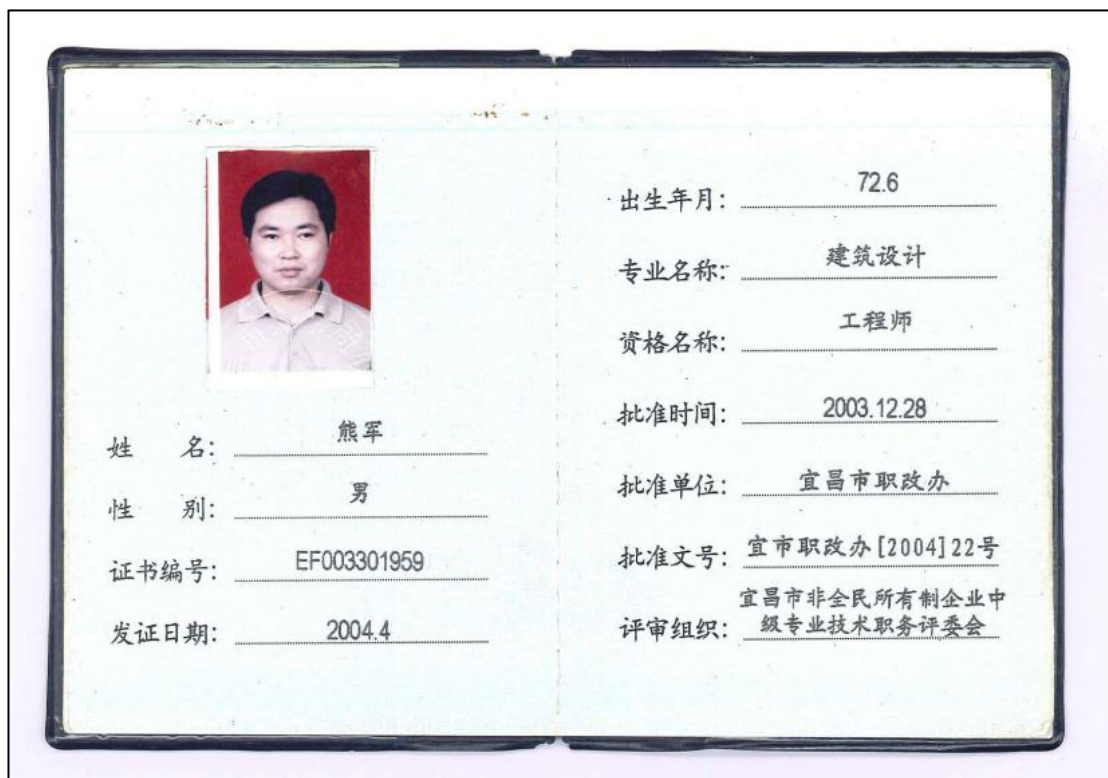 姓 名: 熊军
性 别: 男
证书编号: EF003301959
发证日期: 2004.4
出生年月: 72.6
专业名称: 建筑设计
资格名称: 工程师
批准时间: 2003.12.28
批准单位: 宜昌市职改办
批准文号: 宜市职改办[2004]22号
宜昌市非全民所有制企业中
评审组织: 级专业技术职务评委会